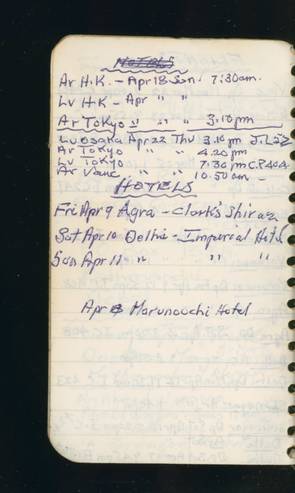 HOTELS
Ar H.K. - Apr 18 Sun. 7:30am.
Lv H-K - Apr " "
Ar Tokyo " " 3.10pm
Lv Osaka Apr 22 Thu 3.10pm J.L 22
Ar Tokyo " " 4.20pm
Lv Tokyo " " 7.30pm C.P 40A.
Ar Vanc " " 10.50am -
HOTELS
Fri Apr 9 Agra - Clark's Shiraz
Sat Apr 10 Delhi - Imperial Hotel
Sun Apr 11 " " "
Apr Marunouchi Hotel